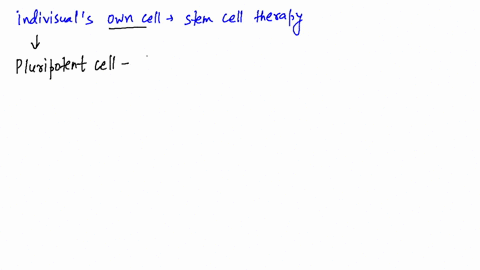 indivisual's own cell → stem cell therapy
↓
Pluripotent cell -